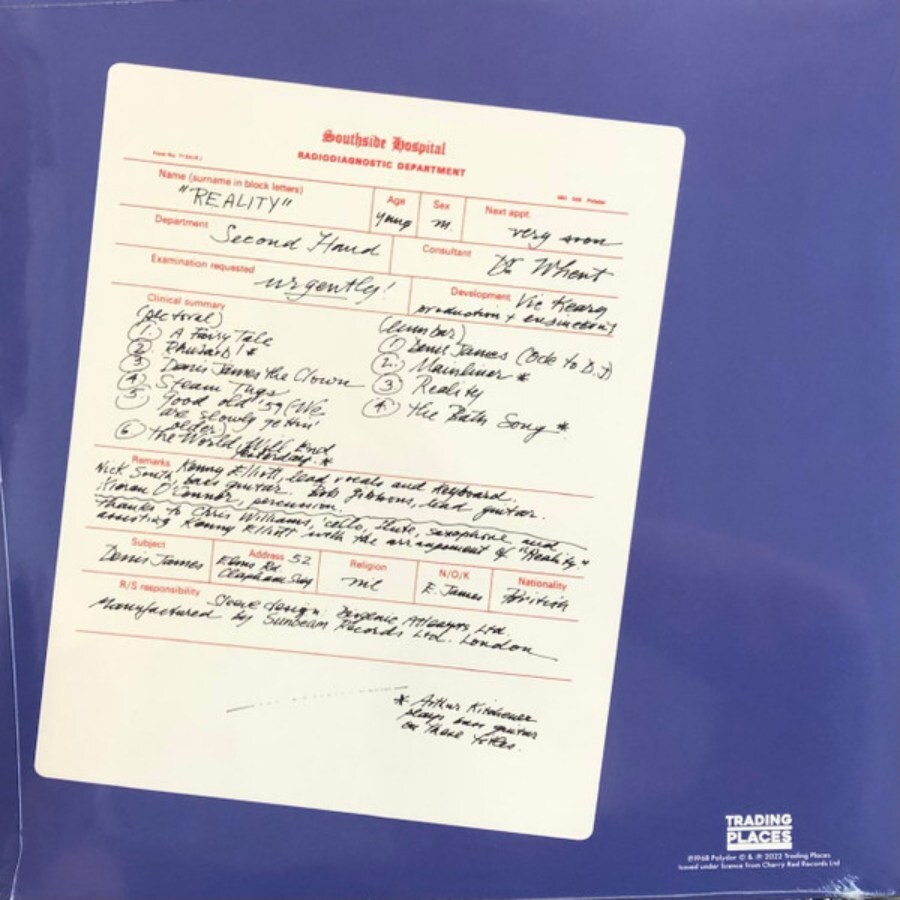 Southside Hospital
RADIODIAGNOSTIC DEPARTMENT
Name (surname in block letters)
"REALITY"
Age
young
Sex
m.
Next appt.
very soon
Department
Second Hand
Consultant
Dr Whent
Examination requested
urgently!
Development Vic Keary
production + engineering
Clinical summary
(pectoral)
1. A Fairy Tale
2 Rhubarb! *
3 Denis James the Clown
4 Steam Tugs
5. Good old '59 (We
are slowly gettin'
older)
6 The World Will End
Yesterday. *
(lumbar)
1 Denis James (Ode to D.J)
2. Mainliner *
3 Reality
4. The Bath Song *
Remarks Kenny Elliott, lead vocals and keyboard.
Nick South, bass guitar. Bob Gibbons, lead guitar.
Kieran O'Connor, percussion.
Thanks to Chris Williams, 'cello, flute, saxophone and
assisting Kenny Elliott with the arrangement of "Reality"
Subject
Denis James
Address 52
Elms Rd.
Clapham
Religion
nil
N/O/K
E. James
Nationality
British
R/S responsibility
Sleeve design: Ltd.
Manufactured by Sunbeam Records Ltd. London
* Arthur Kitchener
plays bass guitar
on these titles.
TRADING
PLACES
℗1968 Polydor © & ℗ 2022 Trading Places
Issued under licence from Cherry Red Records Ltd